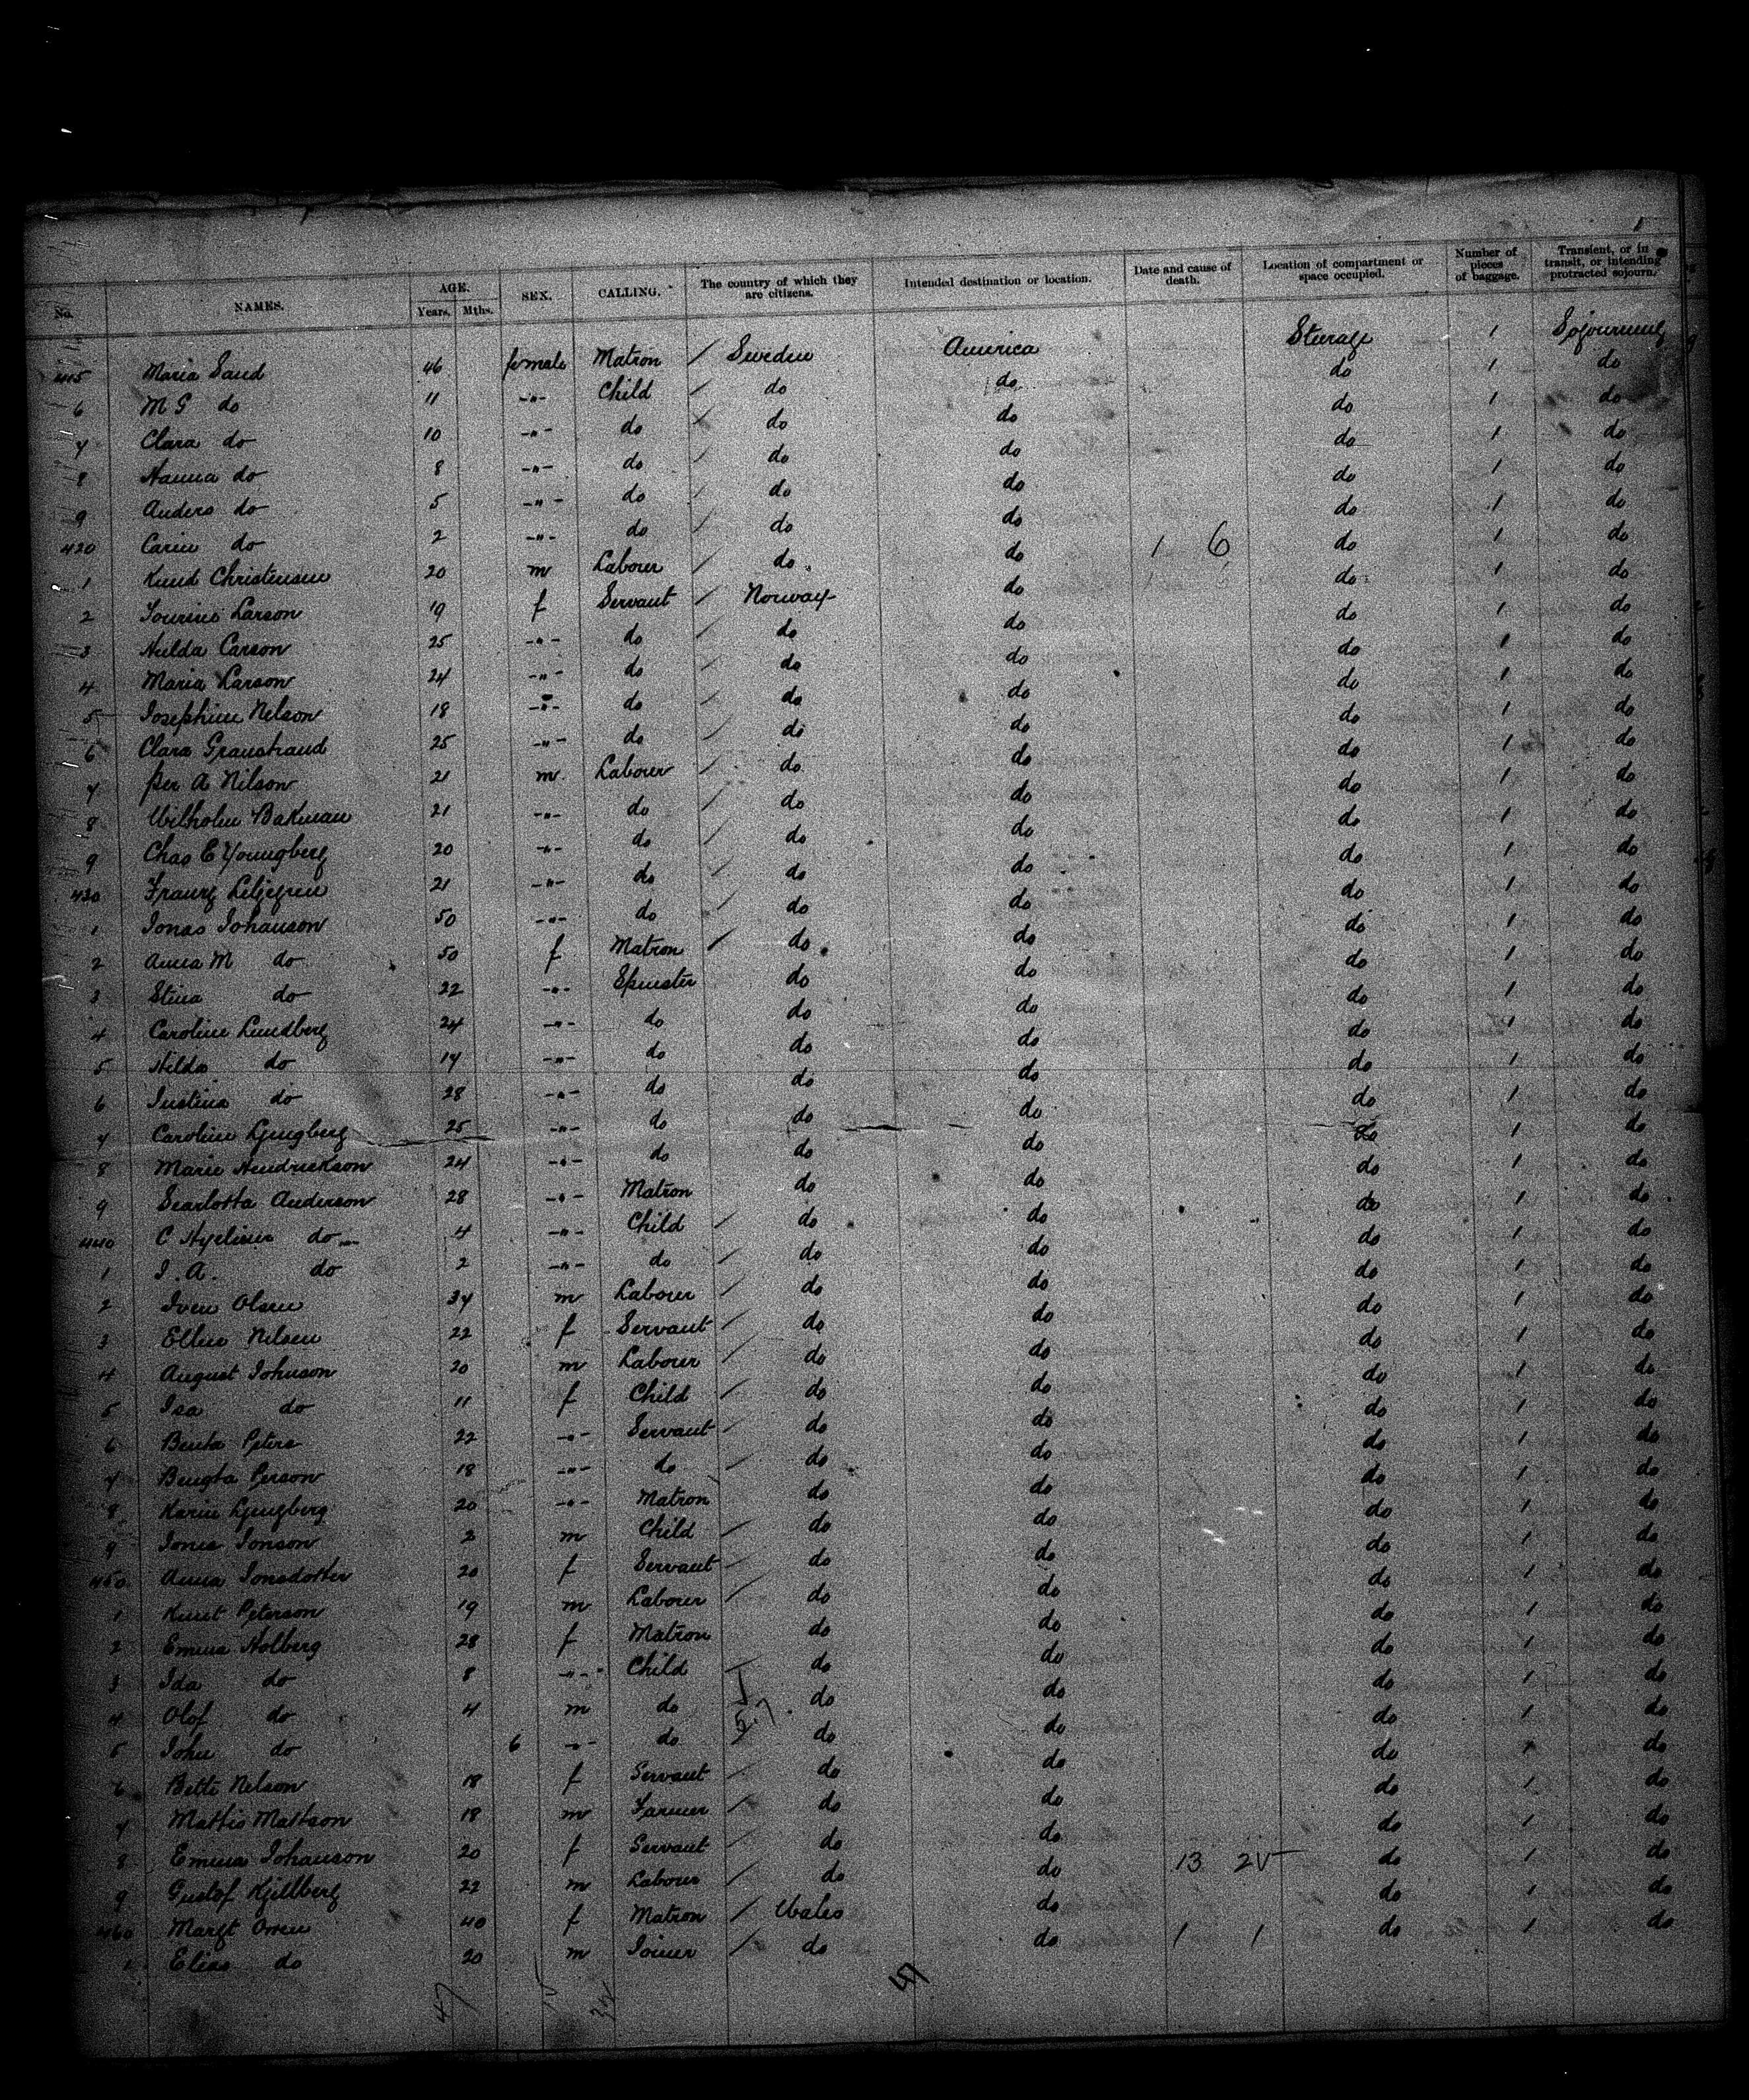 No. NAMES. AGE. Years. Mths. SEX. CALLING. The country of which they are citizens. Intended destination or location. Date and cause of death. Location of compartment or space occupied. Number of pieces of baggage. Transient, or in transit, or intending protracted sojourn.
415 Maria Sand 46 female Matron / Sweden America Steerage 1 Sojourning
6 M G do 11 -"- Child / do do do 1 do
7 Clara do 10 -"- do / do do do 1 do
8 Hanna do 8 -"- do / do do do 1 do
9 Anders do 5 -"- do / do do do 1 do
420 Carin do 2 -"- do / do do do 1 do
1 Knud Christensen 20 m Labourer / do do 1 6 do 1 do
2 Larson 19 f Servant / Norway do do 1 do
3 Hulda Carson 25 -"- do / do do do 1 do
4 Maria Larson 24 -"- do / do do do 1 do
5 Josephine Nelson 18 -"- do / do do do 1 do
6 Clara Granstrand 25 -"- do / do do do 1 do
7 Per A Nilson 21 m Labourer / do do do 1 do
8 Wilholm Bakman 21 -"- do / do do do 1 do
9 Chas E Youngberg 20 -"- do / do do do 1 do
430 Franz Liljegren 21 -"- do / do do do 1 do
1 Jonas Johanson 50 -"- do / do do do 1 do
2 Anna M do 50 f Matron / do do do 1 do
3 Stina do 22 -"- Spinster do do do 1 do
4 Caroline Lundberg 24 -"- do do do do 1 do
5 Hilda do 17 -"- do do do do 1 do
6 Justina do 28 -"- do do do do 1 do
7 Caroline Ljungberg 25 -"- do do do do 1 do
8 Marie Hendrickson 24 -"- do do do do 1 do
9 Scarlotta Anderson 28 -"- Matron do do do 1 do
440 C do 4 -"- Child / do do do 1 do
1 J. A. do 2 -"- do / do do do 1 do
2 Iven Olsen 34 m Labourer / do do do 1 do
3 Ellen Nilsen 22 f Servant / do do do 1 do
4 August Johnson 20 m Labourer / do do do 1 do
5 Isa do 11 f Child / do do do 1 do
6 Benta Peters 22 -"- Servant / do do do 1 do
7 Bengta Person 18 -"- do / do do do 1 do
8 Karin Ljungberg 20 -"- Matron do do do 1 do
9 Jones Jonson 2 m Child / do do do 1 do
450 Anna Jonsdotter 20 f Servant / do do do 1 do
1 Knut Peterson 19 m Labourer / do do do 1 do
2 Emma Holberg 28 f Matron do do do 1 do
3 Ida do 8 -"- Child / do do do 1 do
4 Olof do 4 m do do do do 1 do
5 John do 6 -"- do do do do 1 do
6 Bette Nelson 18 f Servant / do do do 1 do
7 Mattis Mattson 18 m Farmer / do do do 1 do
8 Emma Johanson 20 f Servant / do do do 1 do
9 Gustof Kjellberg 22 m Labourer / do do 13 25 do 1 do
460 Margt Owen 40 f Matron / Wales do do 1 do
1 Elias do 20 m Joiner / do do 1 1 do 1 do
47 47